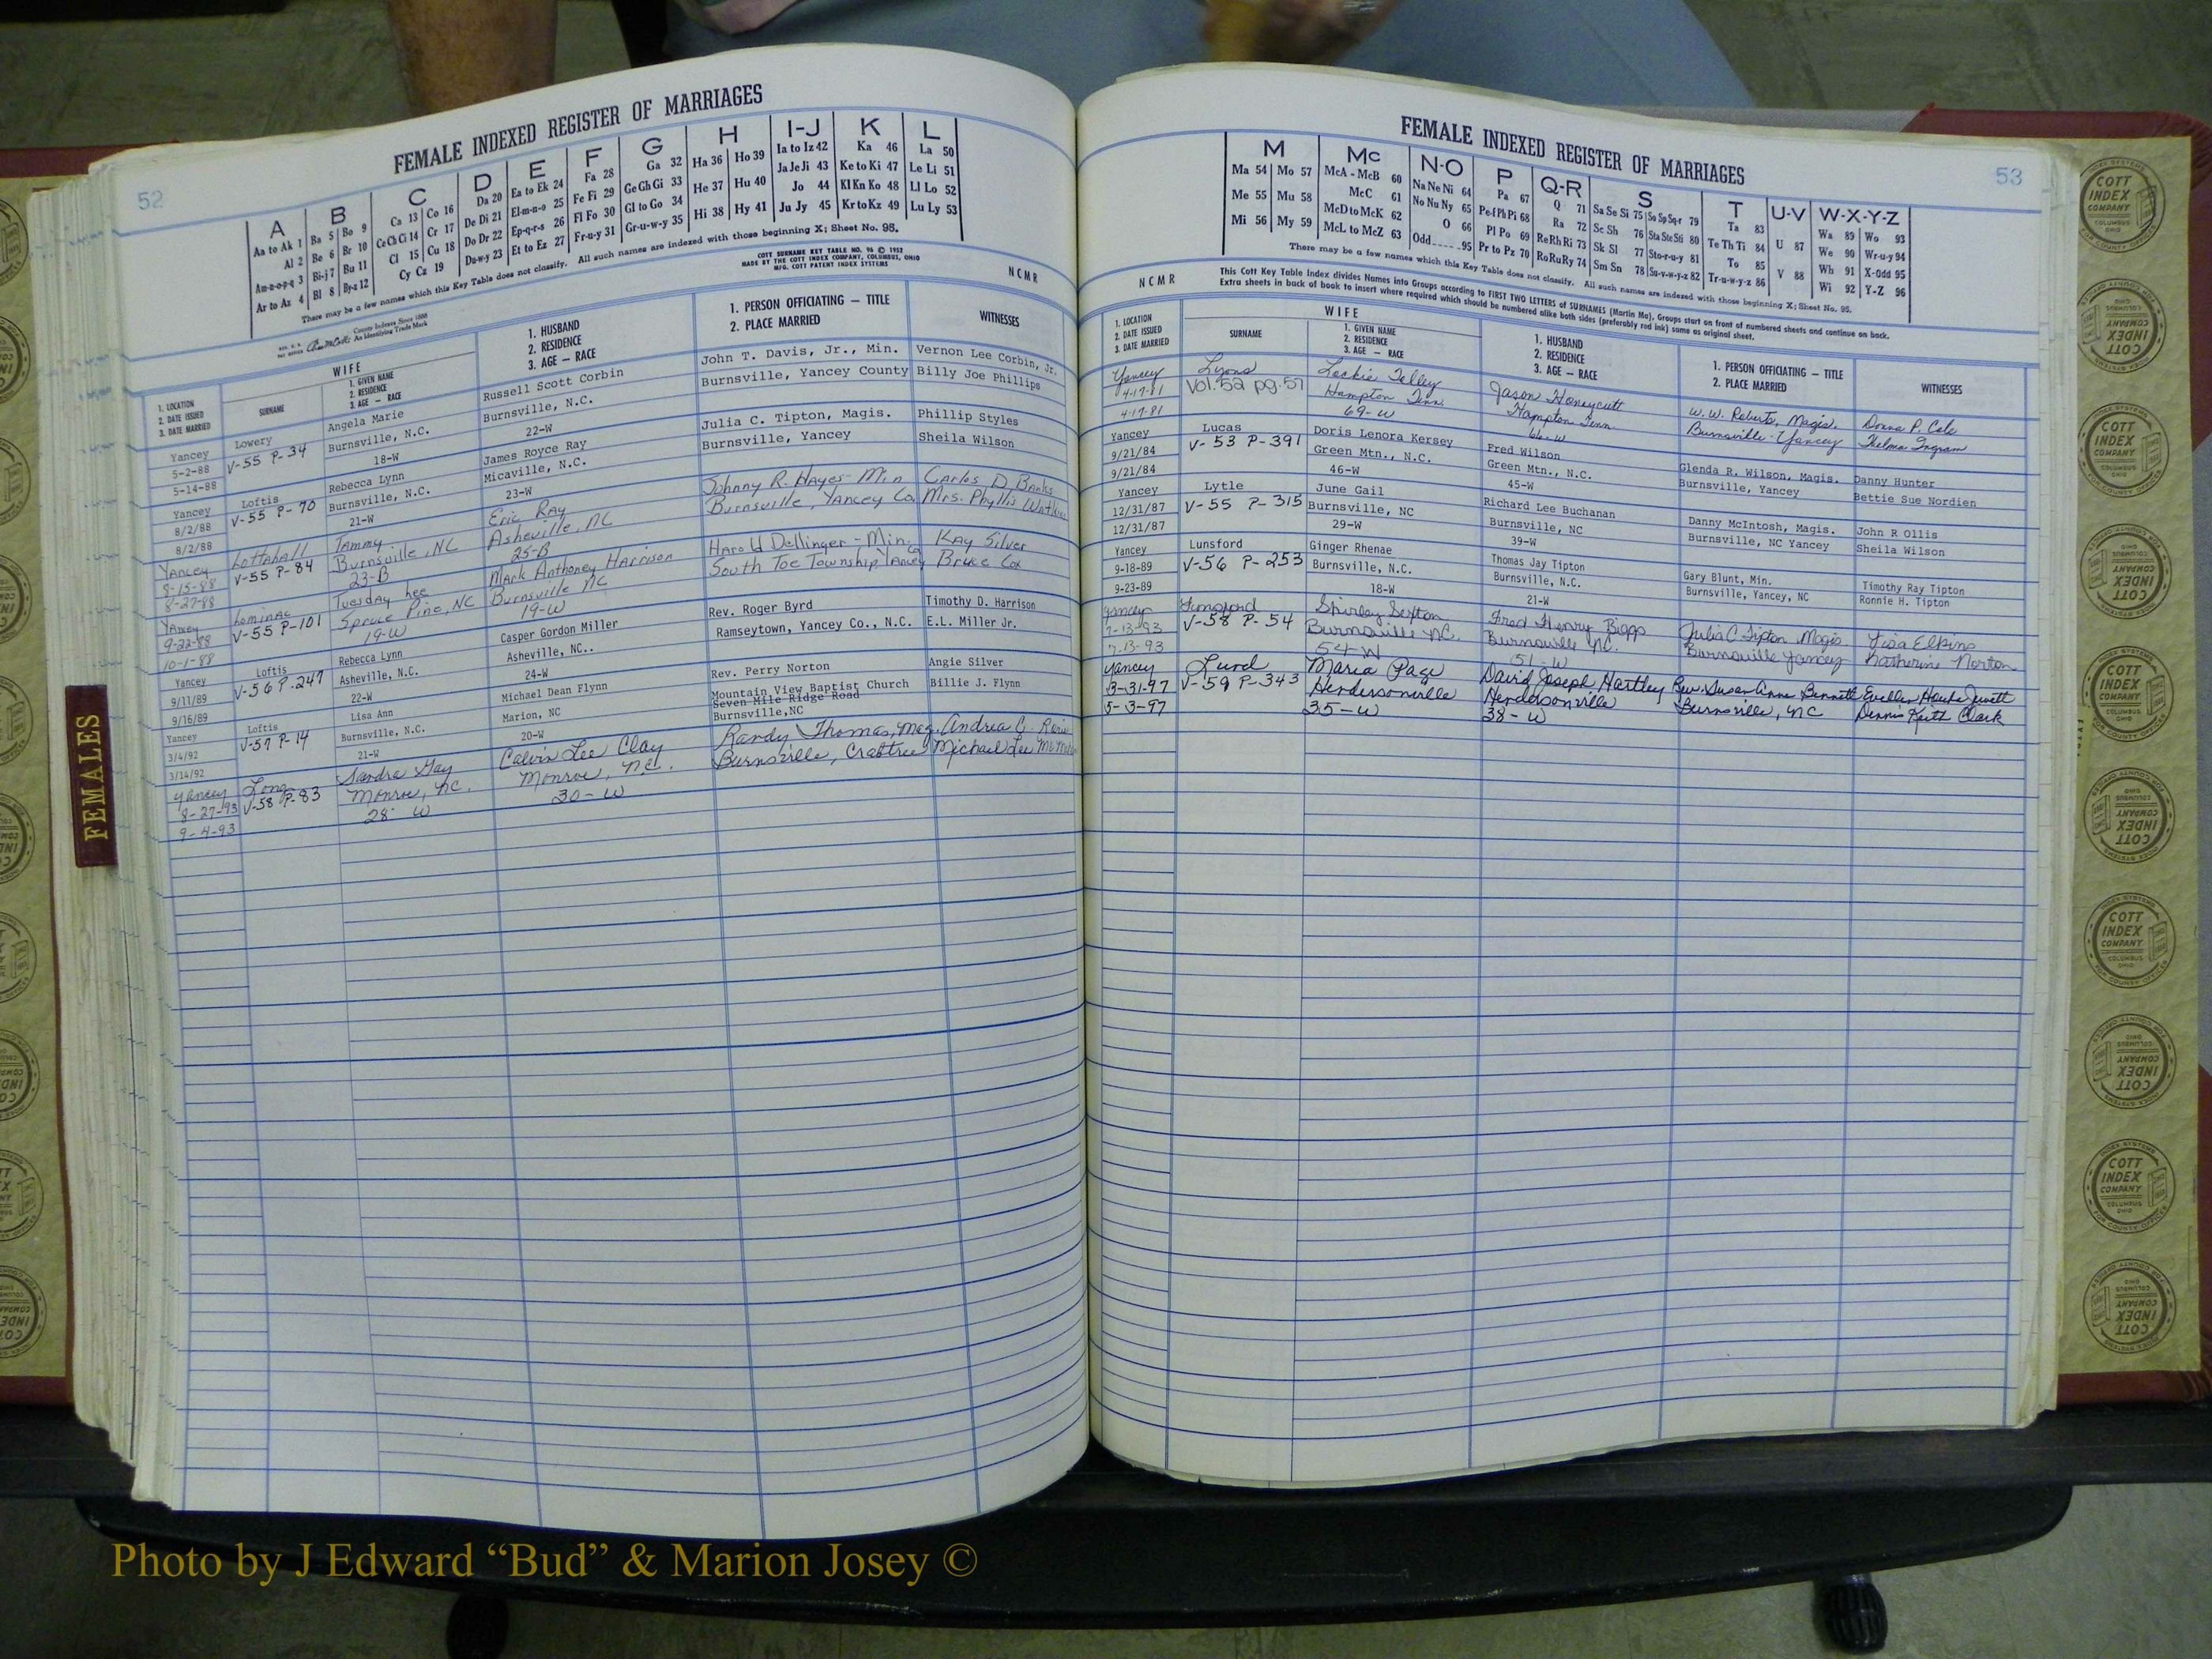 52
FEMALE INDEXED REGISTER OF MARRIAGES
A
Aa to Ak 1
Al 2
Am-n-o-p-q 3
Ar to Az 4
B
Ba 5 Bo 9
Be 6 Br 10
Bi-j 7 Bu 11
Bl 8 By-z 12
C
Ca 13 Co 16
Ce Ch Ci 14 Cr 17
Cl 15 Cu 18
Cy Cz 19
D
Da 20
De Di 21
Do Dr 22
Du-w-y 23
E
Ea to Ek 24
El-m-n-o 25
Ep-q-r-s 26
Et to Ez 27
F
Fa 28
Fe Fi 29
Fl Fo 30
Fr-u-y 31
G
Ga 32
Ge Gh Gi 33
Gl to Go 34
Gr-u-w-y 35
H
Ha 36 Ho 39
He 37 Hu 40
Hi 38 Hy 41
I-J
Ia to Iz 42
Ja Je Ji 43
Jo 44
Ju Jy 45
K
Ka 46
Ke to Ki 47
Kl Kn Ko 48
Kr to Kz 49
L
La 50
Le Li 51
Ll Lo 52
Lu Ly 53
There may be a few names which this Key Table does not classify. All such names are indexed with those beginning X; Sheet No. 95.
COTT SURNAME KEY TABLE NO. 96 © 1952
MADE BY THE COTT INDEX COMPANY, COLUMBUS, OHIO
MFG. COTT PATENT INDEX SYSTEMS
County Indexes Since 1888
An Identifying Trade Mark
NCMR
1. LOCATION
2. DATE ISSUED
3. DATE MARRIED
WIFE
SURNAME
1. GIVEN NAME
2. RESIDENCE
3. AGE — RACE
1. HUSBAND
2. RESIDENCE
3. AGE — RACE
1. PERSON OFFICIATING — TITLE
2. PLACE MARRIED
WITNESSES
Yancey Lowery Angela Marie Russell Scott Corbin John T. Davis, Jr., Min. Vernon Lee Corbin, Jr.
5-2-88 V-55 P-34 Burnsville, N.C. Burnsville, N.C. Burnsville, Yancey County Billy Joe Phillips
5-14-88 18-W 22-W
Yancey Loftis Rebecca Lynn James Royce Ray Julia C. Tipton, Magis. Phillip Styles
8/2/88 V-55 P-70 Burnsville, N.C. Micaville, N.C. Burnsville, Yancey Sheila Wilson
8/2/88 21-W 23-W
Yancey Lottahall Tammy Eric Ray Johnny R. Hayes-Min Carlos D Banks
8-15-88 V-55 P-84 Burnsville, NC Asheville, NC Burnsville, Yancey Co. Mrs. Phyllis Watkins
8-27-88 23-B 25-B
Yancey Lominac Tuesday Lee Mark Anthoney Harrison Harold Dellinger-Min. Kay Silver
9-22-88 V-55 P-101 Spruce Pine, NC Burnsville NC South Toe Township Yancey Co Bruce Cox
10-1-88 19-W 19-W
Yancey Loftis Rebecca Lynn Casper Gordon Miller Rev. Roger Byrd Timothy D. Harrison
9/11/89 V-56 P.247 Asheville, N.C. Asheville, NC.. Ramseytown, Yancey Co., N.C. E.L. Miller Jr.
9/16/89 22-W 24-W
Yancey Loftis Lisa Ann Michael Dean Flynn Rev. Perry Norton Angie Silver
3/4/92 V-57 P-14 Burnsville, N.C. Marion, NC Mountain View Baptist Church Billie J. Flynn
Seven Mile Ridge Road
3/14/92 21-W 20-W Burnsville,NC
Yancey Long Sandra Gay Calvin Lee Clay Randy Thomas, Mag. Andrea G.
8-27-93 V-58 P-83 Monroe, NC. Monroe, NC. Burnsville, Crabtree Michael Lee
9-4-93 28- W 30- W
FEMALES
53
FEMALE INDEXED REGISTER OF MARRIAGES
M
Ma 54 Mo 57
Me 55 Mu 58
Mi 56 My 59
Mc
McA - McB 60
McC 61
McD to McK 62
McL to McZ 63
N-O
Na Ne Ni 64
No Nu Ny 65
O 66
Odd 95
P
Pa 67
Pe-f Ph Pi 68
Pl Po 69
Pr to Pz 70
Q-R
Q 71
Ra 72
Re Rh Ri 73
Ro Ru Ry 74
S
Sa Se Si 75 So Sp Sq-r 79
Sc Sh 76 Sta Ste Sti 80
Sk Sl 77 Sto-r-u-y 81
Sm Sn 78 Su-v-w-y-z 82
T
Ta 83
Te Th Ti 84
To 85
Tr-u-w-y-z 86
U-V
U 87
V 88
W-X-Y-Z
Wa 89 Wo 93
We 90 Wr-u-y 94
Wh 91 X-Odd 95
Wi 92 Y-Z 96
There may be a few names which this Key Table does not classify. All such names are indexed with those beginning X; Sheet No. 95.
NCMR
This Cott Key Table Index divides Names into Groups according to FIRST TWO LETTERS of SURNAMES (Martin Ma), Groups start on front of numbered sheets and continue on back.
Extra sheets in back of book to insert where required which should be numbered alike both sides (preferably red ink) same as original sheet.
1. LOCATION
2. DATE ISSUED
3. DATE MARRIED
WIFE
SURNAME
1. GIVEN NAME
2. RESIDENCE
3. AGE — RACE
1. HUSBAND
2. RESIDENCE
3. AGE — RACE
1. PERSON OFFICIATING — TITLE
2. PLACE MARRIED
WITNESSES
Yancey Lyons Lockie Tolley Jason Honeycutt W. W. Roberts, Magis. Donna P. Cole
4-17-81 Vol. 52 pg. 57 Hampton Tenn. Hampton Tenn. Burnsville-Yancey Thelma Ingram
4-17-81 69-W
Yancey Lucas Doris Lenora Kersey Fred Wilson Glenda R. Wilson, Magis. Danny Hunter
9/21/84 V-53 P-391 Green Mtn., N.C. Green Mtn., N.C. Burnsville, Yancey Bettie Sue Nordien
9/21/84 46-W 45-W
Yancey Lytle June Gail Richard Lee Buchanan Danny McIntosh, Magis. John R Ollis
12/31/87 V-55 P-315 Burnsville, NC Burnsville, NC Burnsville, NC Yancey Sheila Wilson
12/31/87 29-W 39-W
Yancey Lunsford Ginger Rhenae Thomas Jay Tipton Gary Blunt, Min. Timothy Ray Tipton
9-18-89 V-56 P-253 Burnsville, N.C. Burnsville, N.C. Burnsville, Yancey, NC Ronnie H. Tipton
9-23-89 18-W 21-W
Yancey Lunsford Shirley Sexton Fred Henry Biggs Julia C Tipton Magis Lisa Elkins
7-13-93 V-58 P-54 Burnsville NC. Burnsville NC. Burnsville Yancey Katherine Norton
7-13-93 54-W 51-W
Yancey Lund Maria Page David Joseph Hartley Rev. Susan Anne Bennett
3-31-97 V-59 P-343 Hendersonville Hendersonville Burnsville, NC Dennis Keith Clark
5-3-97 35-W 38-W
COTT INDEX COMPANY COLUMBUS OHIO
INDEX SYSTEMS FOR COUNTY OFFICES
Photo by J Edward “Bud” & Marion Josey ©